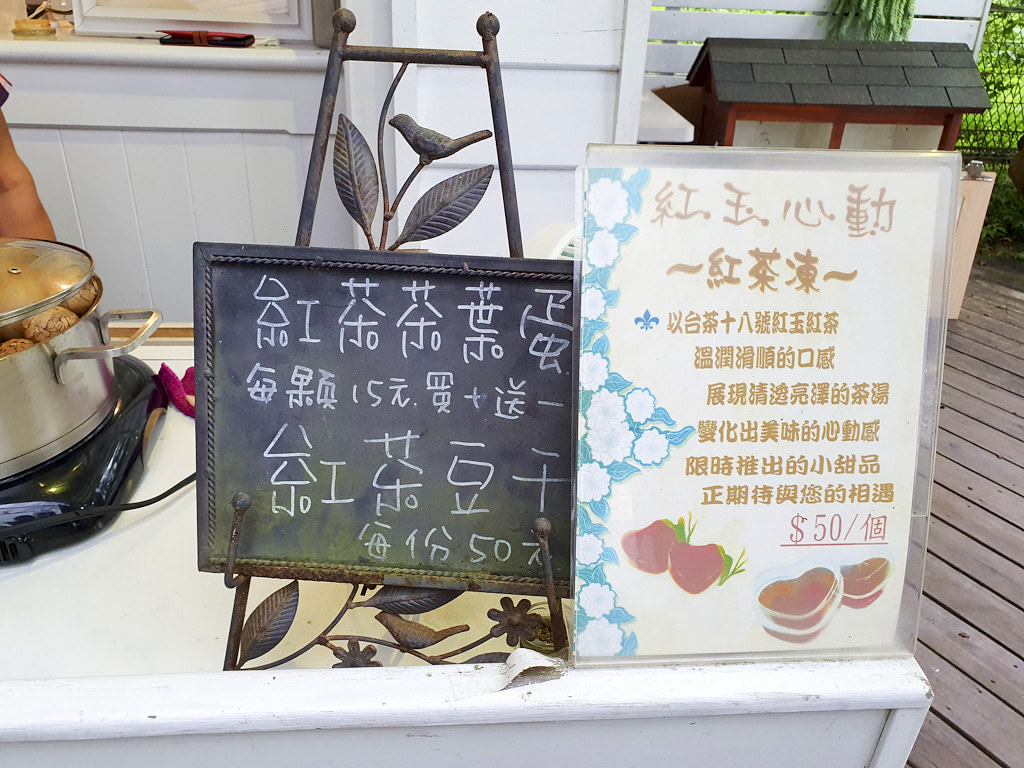 紅茶茶葉蛋
每顆15元.買十送一
紅茶豆干
每份50元
紅玉心動
～紅茶凍～
以台茶十八號紅玉紅茶
溫潤滑順的口感
展現清透亮澤的茶湯
變化出美味的心動感
限時推出的小甜品
正期待與您的相遇
$50/個